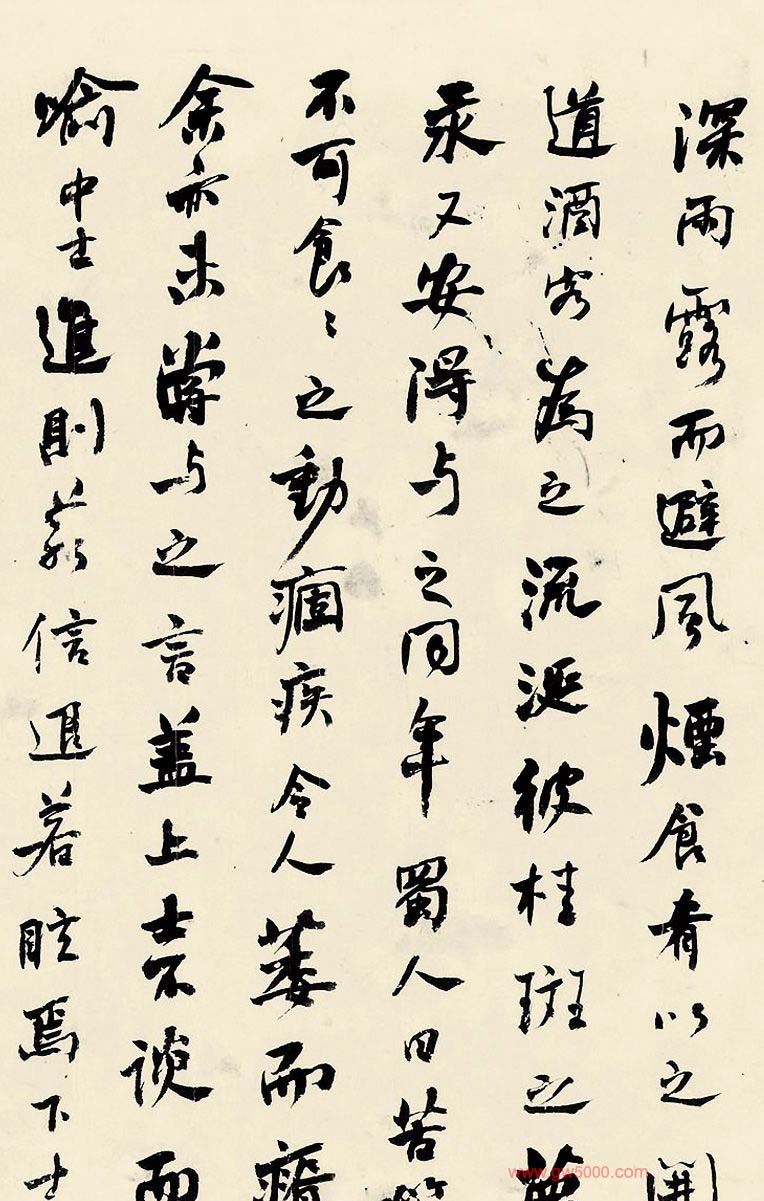 深雨露而避風煙食肴以之開
道酒客為之流涎彼桂斑之
汞又安得与之同年蜀人曰苦
不可食々之動痼疾令人萎而瘠
余亦未嘗与之言盖上士不談而
喻中士進則若信退若眩焉下士
www.gw5000.com